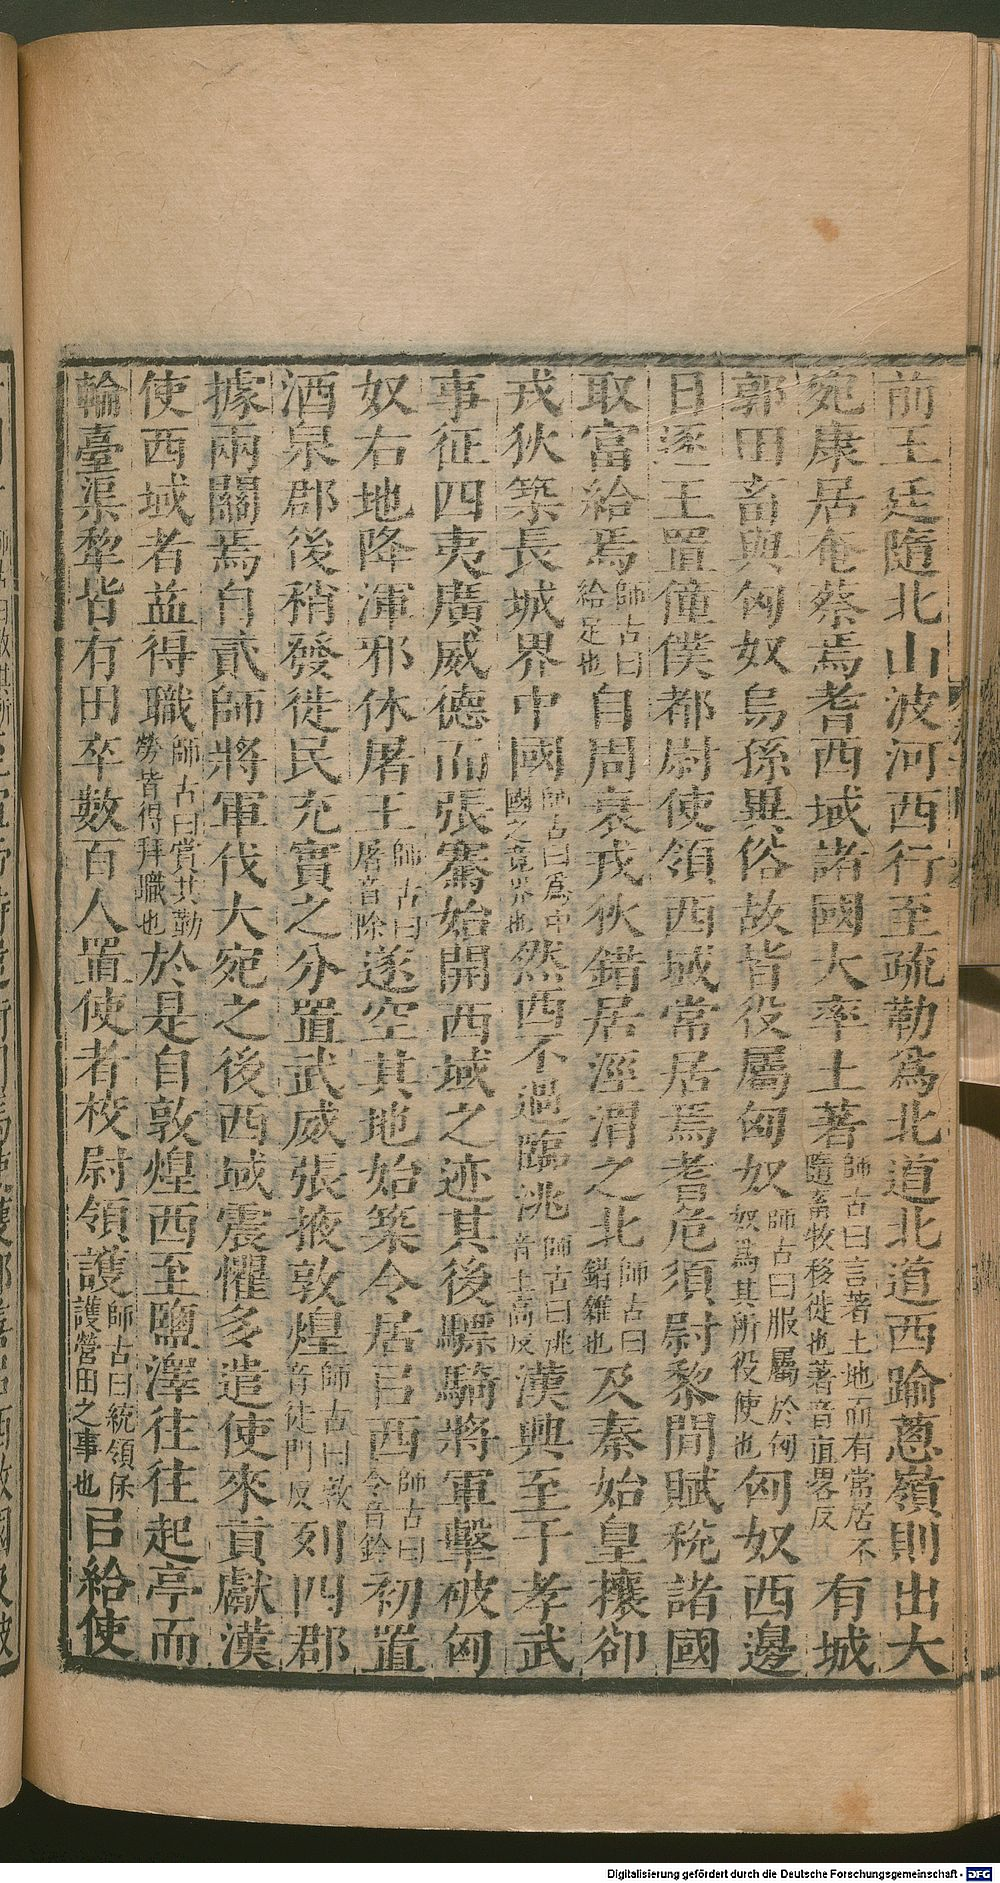 前王廷隨北山波河西行至疏勒爲北道北道西踰蔥嶺則出大
宛康居奄蔡焉耆西域諸國大率土著師古曰言著土地而有常居不隨畜牧移徙也著音直畧反有城
郭田畜與匈奴烏孫異俗故皆役屬匈奴師古曰服屬於匈奴爲其所役使也匈奴西邊
日逐王置僮僕都尉使領西域常居焉耆危須尉黎間賦稅諸國
取富給焉師古曰給足也自周衰戎狄錯居涇渭之北師古曰錯雜也及秦始皇攘卻
戎狄築長城界中國師古曰爲中國之竟界也然西不過臨洮師古曰洮音土高反漢興至于孝武
事征四夷廣威德而張騫始開西域之迹其後驃騎將軍擊破匈
奴右地降渾邪休屠王師古曰屠音除遂空其地始築令居㠯西師古曰令音鈴初置
酒泉郡後稍發徙民充實之分置武威張掖敦煌師古曰敦音徒門反列四郡
據兩關焉自貳師將軍伐大宛之後西域震懼多遣使來貢獻漢
使西域者益得職師古曰賞其勤勞皆得拜職也於是自敦煌西至鹽澤往往起亭而
輪臺渠犂皆有田卒數百人置使者校尉領護師古曰統領保護營田之事也㠯給使
Digitalisierung gefördert durch die Deutsche Forschungsgemeinschaft - DFG